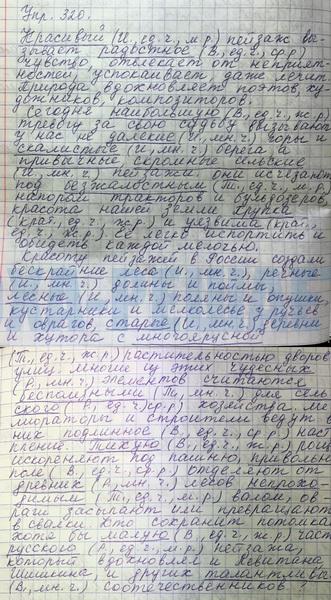 Упр. 320.
Красивый (И., ед.ч., м.р.) пейзаж вы-
зывает радостное (В., ед.ч., ср.р.)
чувство, отвлекает от неприят-
ностей, успокаивает, даже лечит.
Природа вдохновляет поэтов, ху-
дожников, композиторов.
Сегодня наибольшую (В., ед.ч., ж.р.)
тревогу за свою судьбу вызывают
у нас не далекие (И., мн.ч.) горы и
скалистые (И., мн.ч.) берега а
привычные, скромные сельские
(И., мн.ч.) пейзажи. они исчезают
под безжалостным (Т., ед.ч., м.р.)
напором тракторов и бульдозеров,
красота нашей земли хрупка
(крат., ед.ч., ж.р.), (крат.,
ед.ч., ж.р.). Ее легко испортить и
обидеть каждой мелочью.
Красоту пейзажей в России создали
бескрайние леса (И., мн.ч.), речные
(И., мн.ч.) долины и поймы,
лесные (И., мн.ч.) поляны и опушки,
кустарники и мелколесье у ручьев
и оврагов, старые (И., мн.ч.) деревни
и хутора с многоярусной
(Т., ед.ч., ж.р.) растительностью дворов
улиц. многие из этих чудесных
(Р., мн.ч.) элементов считаются
бесполезными (Т., мн.ч.) для сель
ского (Р., ед.ч., ср.р.) хозяйства. ме
лиораторы и строители ведут в
них подлинное (В., ед.ч., ср.р.) наст
пление. Тихую (В., ед.ч., ж.р.) рощ
искореняют под пашню, привольно
поле (В., ед.ч., ср.р.) отделяют от
древних (Р., мн.ч.) лесов непрохо-
димым (Т., ед.ч., м.р.) валом, ов
раги засыпают или превращают
в свалки. Кто сохранит потомка
хотя бы малую (В., ед.ч., ж.р.) част
русского (Р., ед.ч., м.р.) пейзажа,
который вдохновлял и Левитана
Шишкина, и других талантливы
(В., мн.ч.) соотечественников?